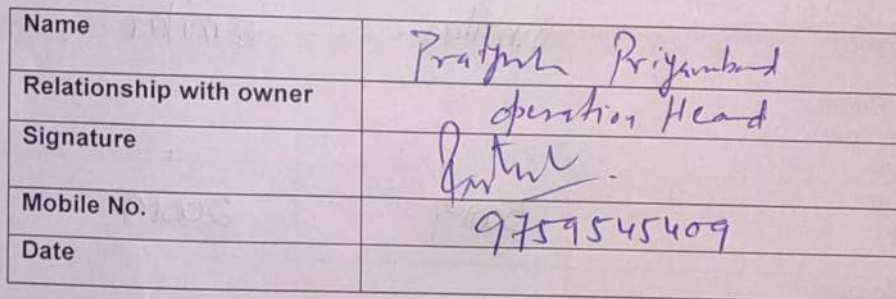 Name Pratyush Priyambad
Relationship with owner operation Head
Signature
Mobile No. 9759545409
Date